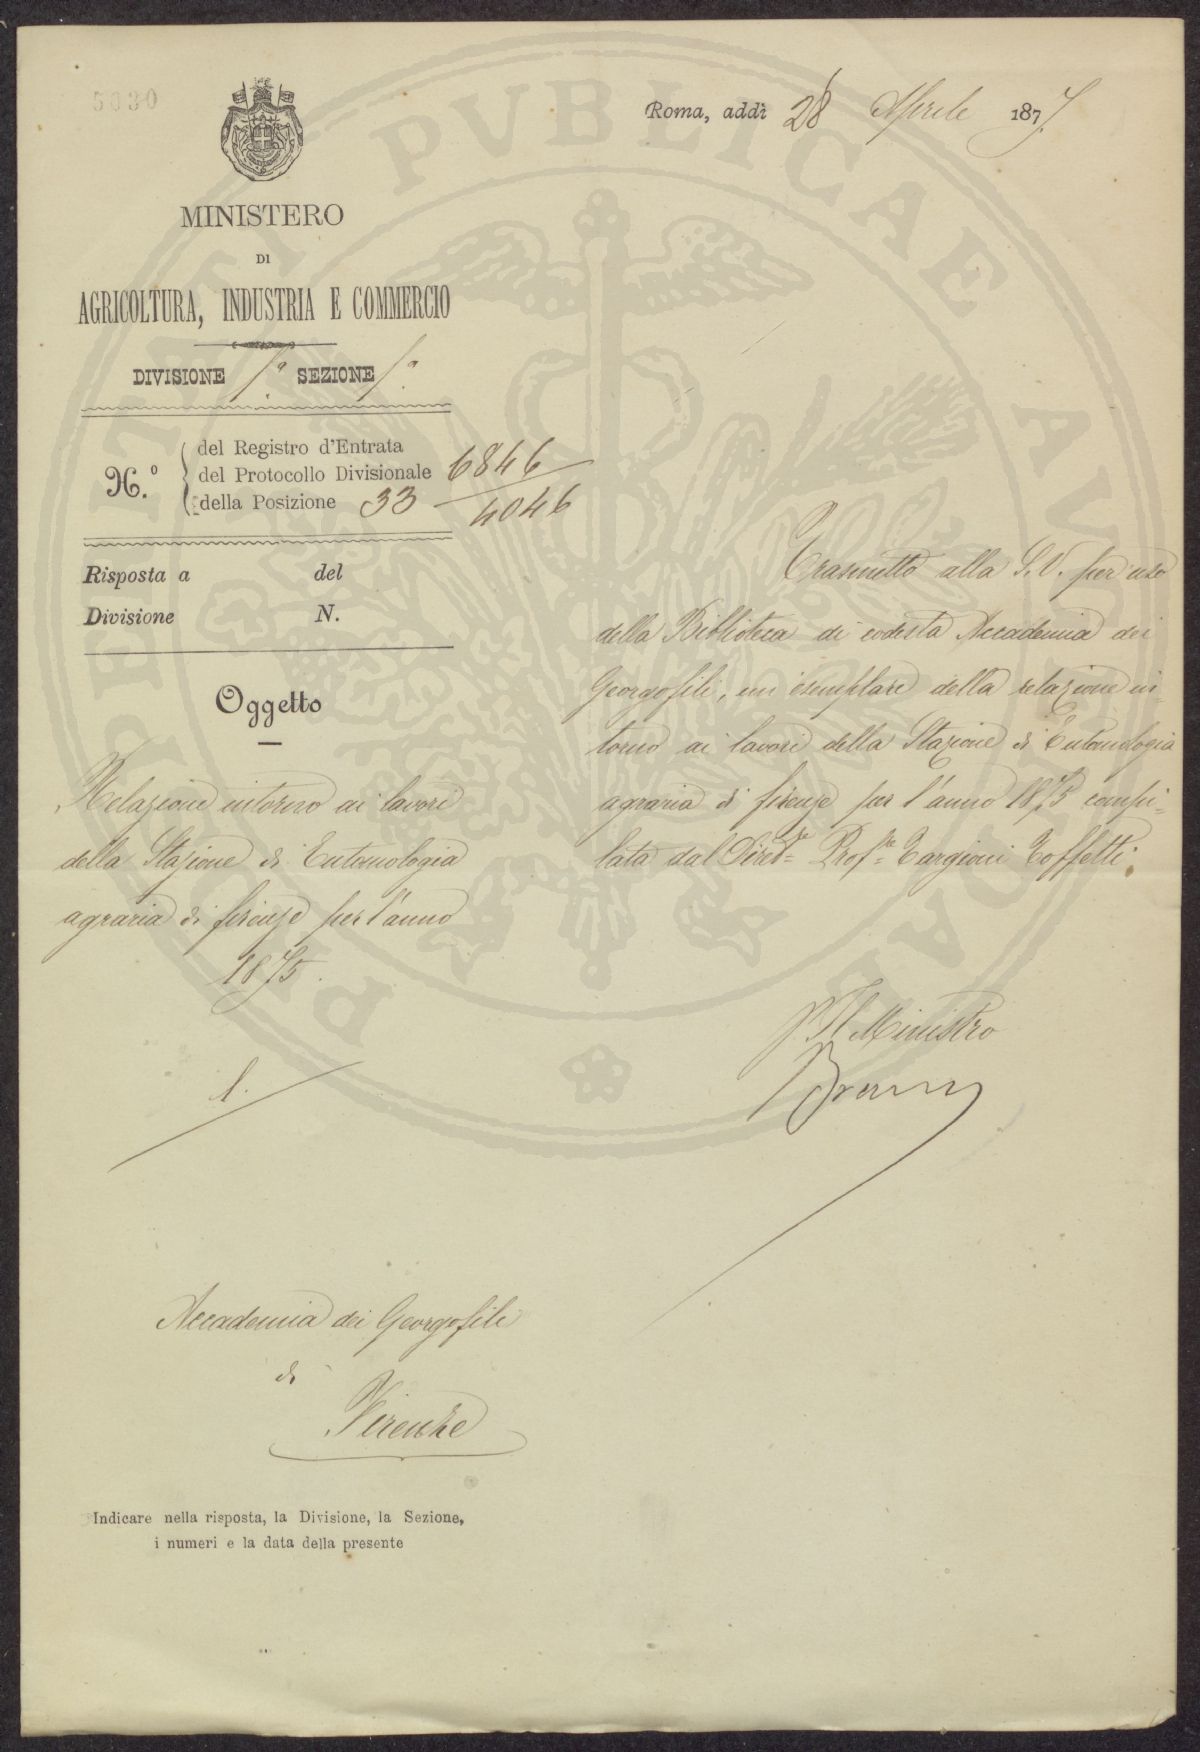 5030
Roma, addì 28 Aprile 1877.
MINISTERO
DI
AGRICOLTURA, INDUSTRIA E COMMERCIO
DIVISIONE 1ª SEZIONE 1ª
N.º
del Registro d'Entrata
del Protocollo Divisionale 6846
della Posizione 33 4046
Risposta a del
Divisione N.
Oggetto
Relazione intorno ai lavori
della Stazione di Entomologia
agraria di firenze per l'anno
1875.
1.
Trasmetto alla S.V. per uso
della Biblioteca di codesta Accademia dei
Georgofili, un esemplare della relazione in-
torno ai lavori della Stazione di Entomologia
agraria di firenze per l'anno 1875 compi-
lata dal Dirett.re Prof.re Targioni Toffetti.
p. Il Ministro
Accademia dei Georgofili
di
Firenze
Indicare nella risposta, la Divisione, la Sezione,
i numeri e la data della presente
PVBLICAE